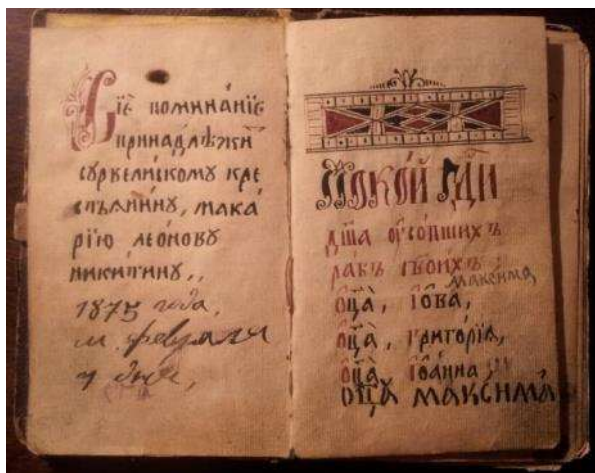 Сїѐ помина́нїѐ
принадлѣжи́
сурвелискому кре
стьѧнину, мака
рїю леонову
никитину,,
1875 года,
м. февраля
дня,
Поко́й гдⷭ҇и
дш҃а оусопшихъ
ра́бъ твои́хъ
максима,
ѻц҃а̀, іѡва,
ѻц҃а̀, григорїа,
ѻц҃а̀, іѡанна,
ѻц҃а макси́ма